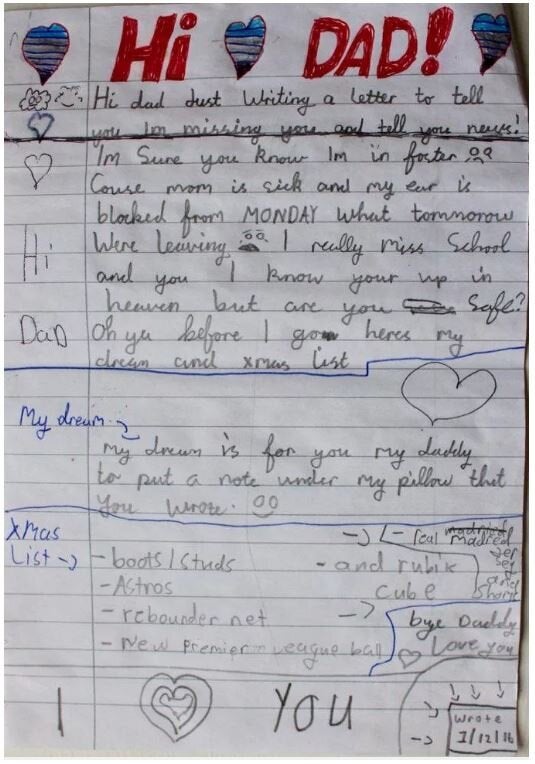 Hi DAD!
Hi dad Just Writing a letter to tell
you Im missing you and tell you news!
Im Sure you know Im in foster
Couse mom is sick and my ear is
blocked from MONDAY What tommorow
Hi
Were leaving I really miss School
and you I know your up in
heaven but are you Safe?
DaD
Oh ya before I go heres my
dream and xmas list
My dream
My dream is for you my daddy
to put a note under my pillow that
you wrote.
Xmas
List
- boots/studs
- Astros
- rebounder net
- New Premier League ball
- real Madrid
Jer
sey
and
Shorts
- and rubix
cube
bye Daddy
Love you
I YOU
Wrote
1/12/16